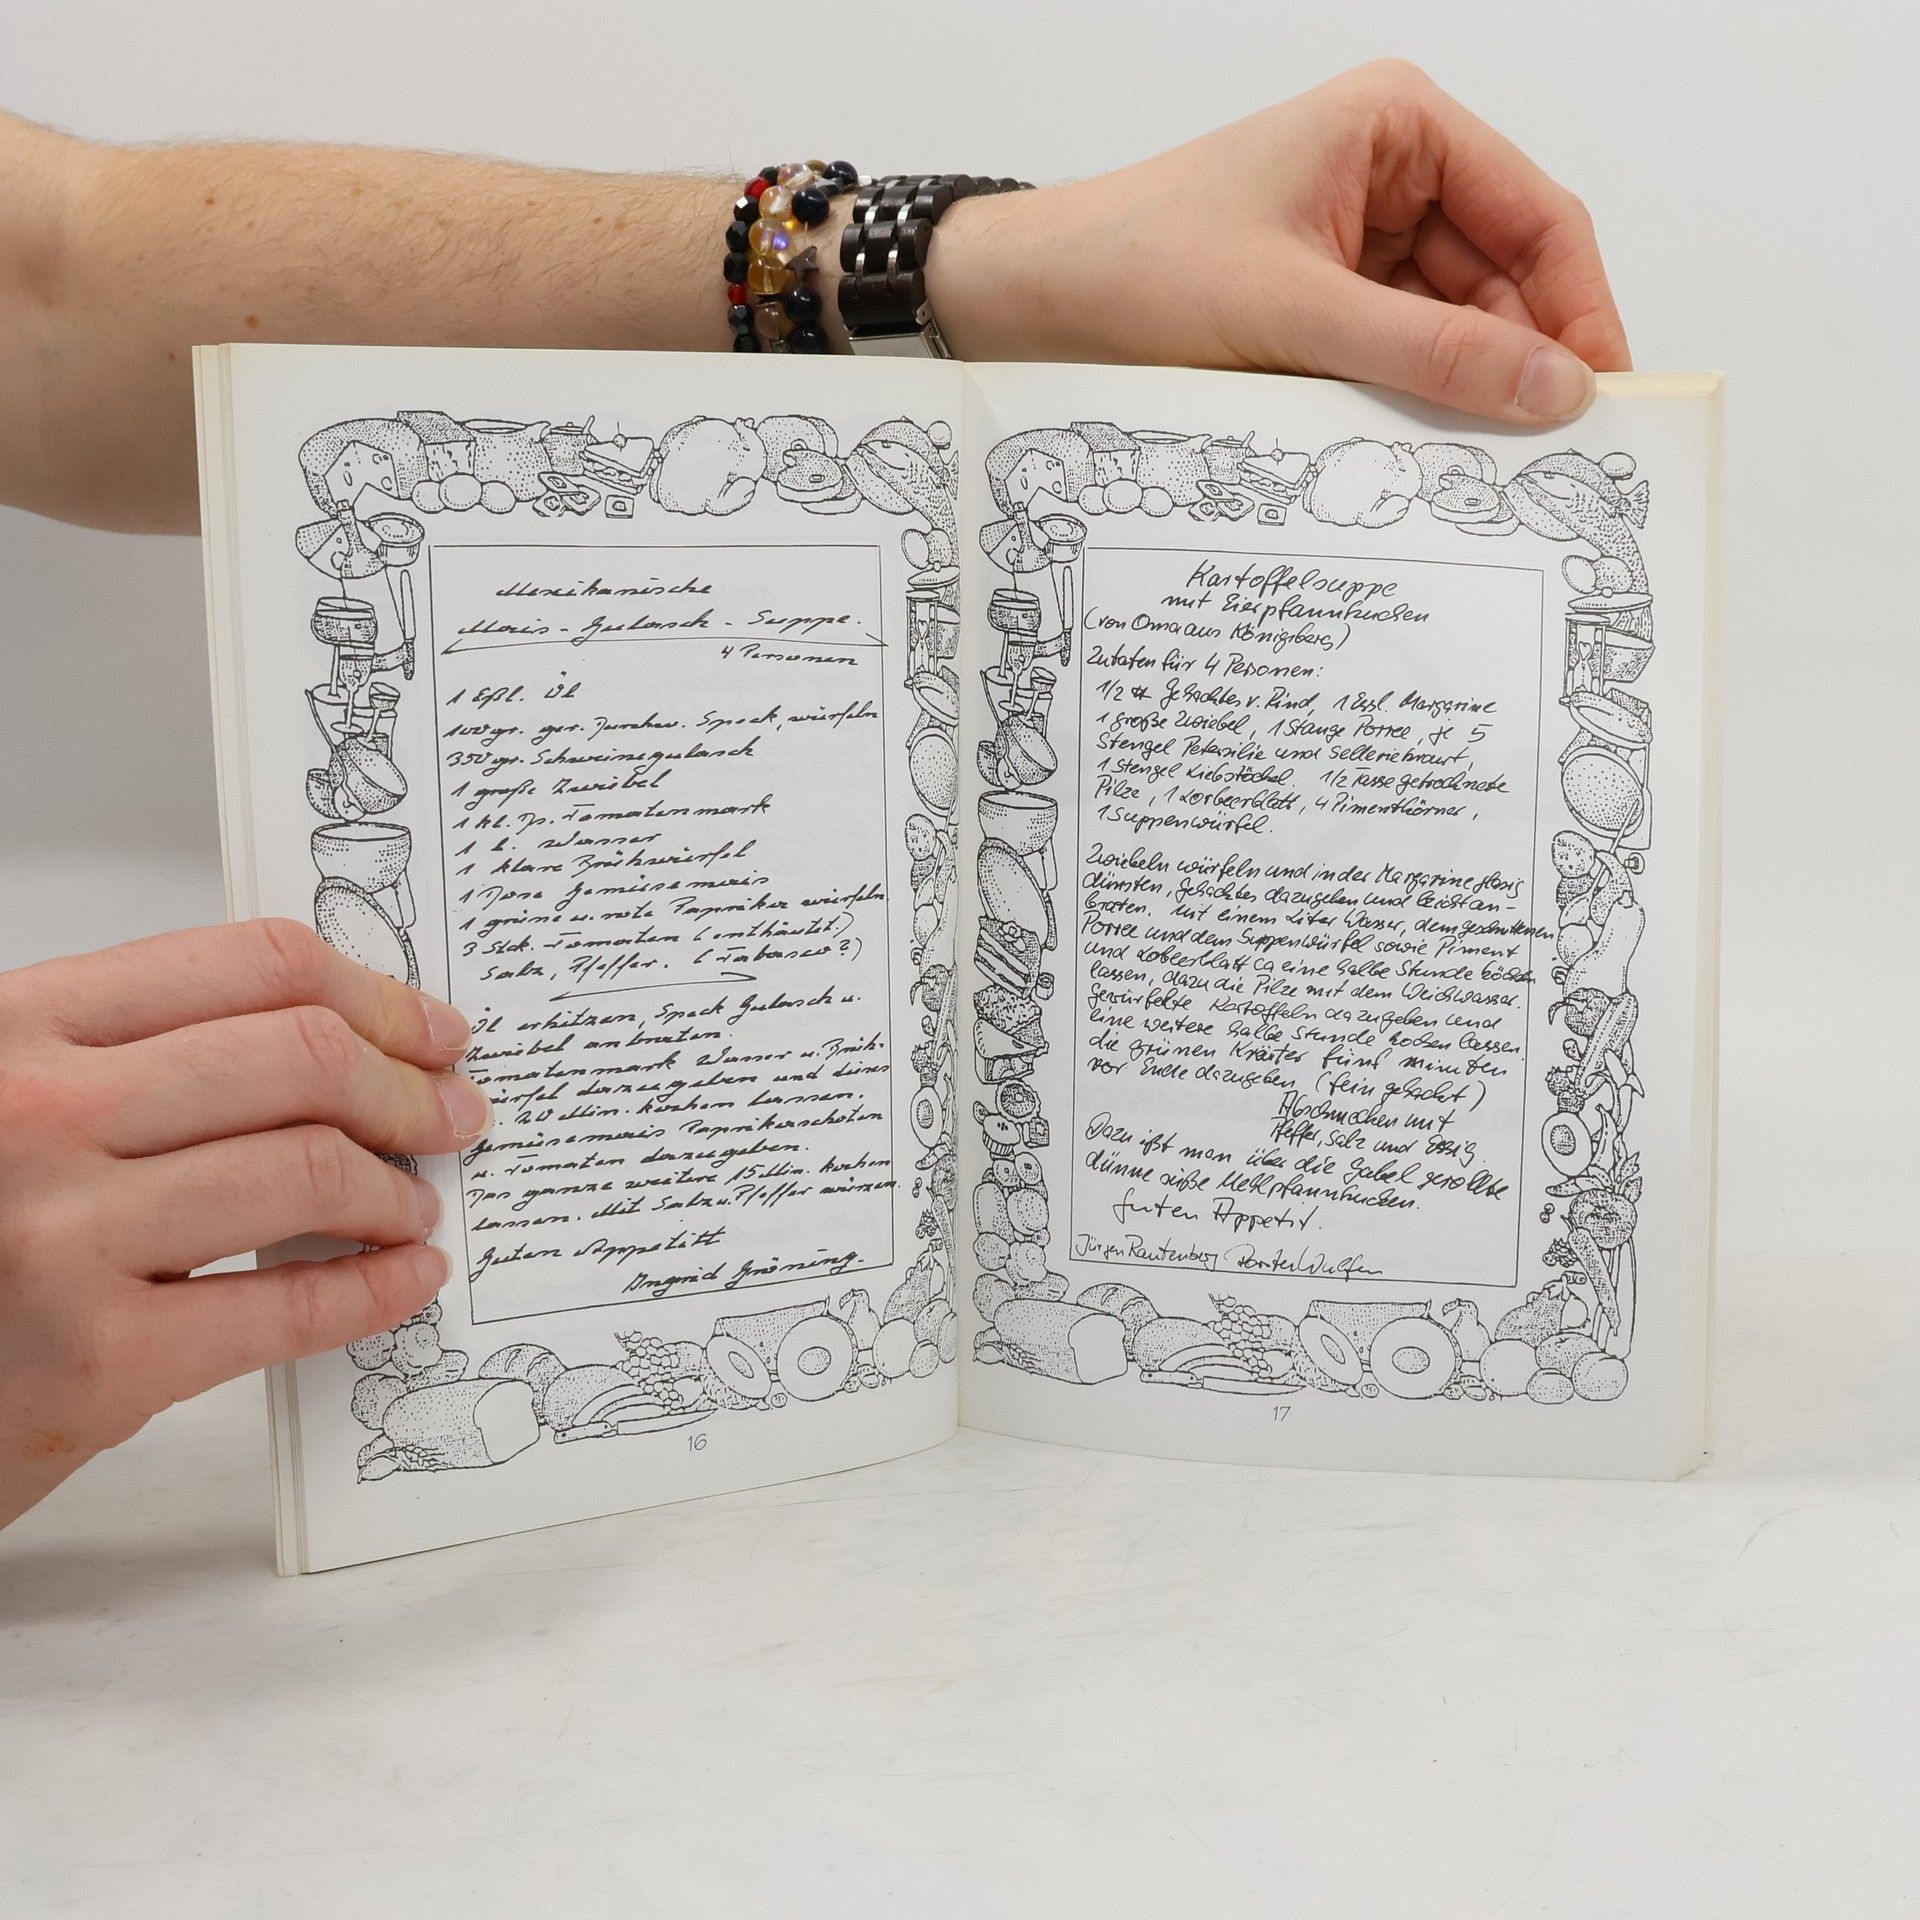 Mexikanische
Mais-Gulasch-Suppe.
4 Personen
1 Eßl. Öl
100 gr. ger. durchw. Speck, würfeln
350 gr. Schweinegulasch
1 große Zwiebel
1 kl. Ds. Tomatenmark
1 l. Wasser
1 klare Brühwürfel
1 Dose Gemüsemais
1 grüne u. rote Paprika würfeln
3 Stck. Tomaten (enthäutet.)
Salz, Pfeffer. (Tabasco?)
Öl erhitzen, Speck Gulasch u.
Zwiebel anbraten.
Tomatenmark Wasser u. Brüh-
würfel dazugeben und dieses
20 Min. kochen lassen.
Gemüsemais Paprikaschoten
u. Tomaten dazugeben.
Das ganze weitere 15 Min. kochen
lassen. Mit Salz u. Pfeffer würzen.
Guten Appetitt
Ingrid Gröning.
16
Kartoffelsuppe
mit Eierpfannkuchen
(von Oma aus Königsberg)
Zutaten für 4 Personen:
1/2 Gehacktes v. Rind, 1 Essl. Margarine
1 große Zwiebel, 1 Stange Porree, je 5
Stengel Petersilie und Selleriekraut,
1 Stengel Liebstöckel 1/2 Tasse getrocknete
Pilze, 1 Lorbeerblatt, 4 Pimentkörner,
1 Suppenwürfel.
Zwiebeln würfeln und in der Margarine glasig
dünsten, Gehacktes dazugeben und leicht an-
braten. Mit einem Liter Wasser, dem geschnittenen
Porree und dem Suppenwürfel sowie Piment
und Lorbeerblatt ca eine halbe Stunde köcheln
lassen, dazu die Pilze mit dem Weichwasser.
Gewürfelte Kartoffeln dazugeben und
eine weitere halbe Stunde kochen lassen.
die grünen Kräuter fünf minuten
vor Ende dazugeben (fein gehackt)
Abschmecken mit
Pfeffer, Salz und Essig.
Dazu ißt man über die Gabel gerollte
dünne süße Mehlpfannkuchen.
Guten Appetit.
Jürgen Rautenberg Torsten Wulfen
17